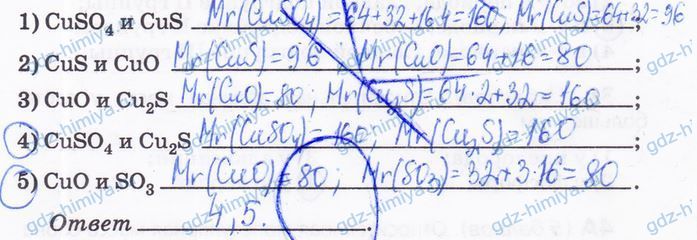 1) CuSO₄ и CuS Mr(CuSO₄)=64+32+16·4=160; Mr(CuS)=64+32=96;
2) CuS и CuO Mr(CuS)=96 Mr(CuO)=64+16=80;
3) CuO и Cu₂S Mr(CuO)=80; Mr(Cu₂S)=64·2+32=160;
4) CuSO₄ и Cu₂S Mr(CuSO₄)=160; Mr(Cu₂S)=160;
5) CuO и SO₃ Mr(CuO)=80; Mr(SO₃)=32+3·16=80.
Ответ 4,5.